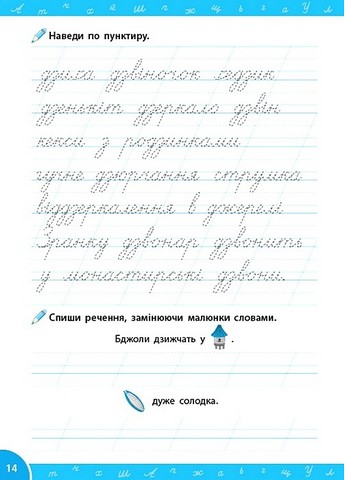 Наведи по пунктиру.
дзиґа дзвіночок ґудзик
дзенькіт дзеркало дзвін
кекси з родзинками
гучне дзюрчання струмка
віддзеркалення в джерелі
Зранку дзвонар дзвонить
у монастирські дзвони.
Спиши речення, замінюючи малюнки словами.
Бджоли дзижчать у .
дуже солодка.
14